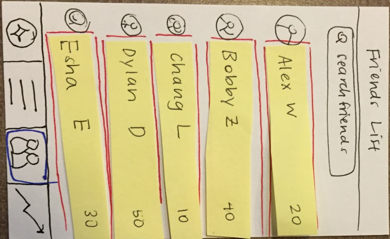 Friends List
Search friends
Alex W 20
Bobby Z 40
Chang L 10
Dylan D 50
Esha E 30